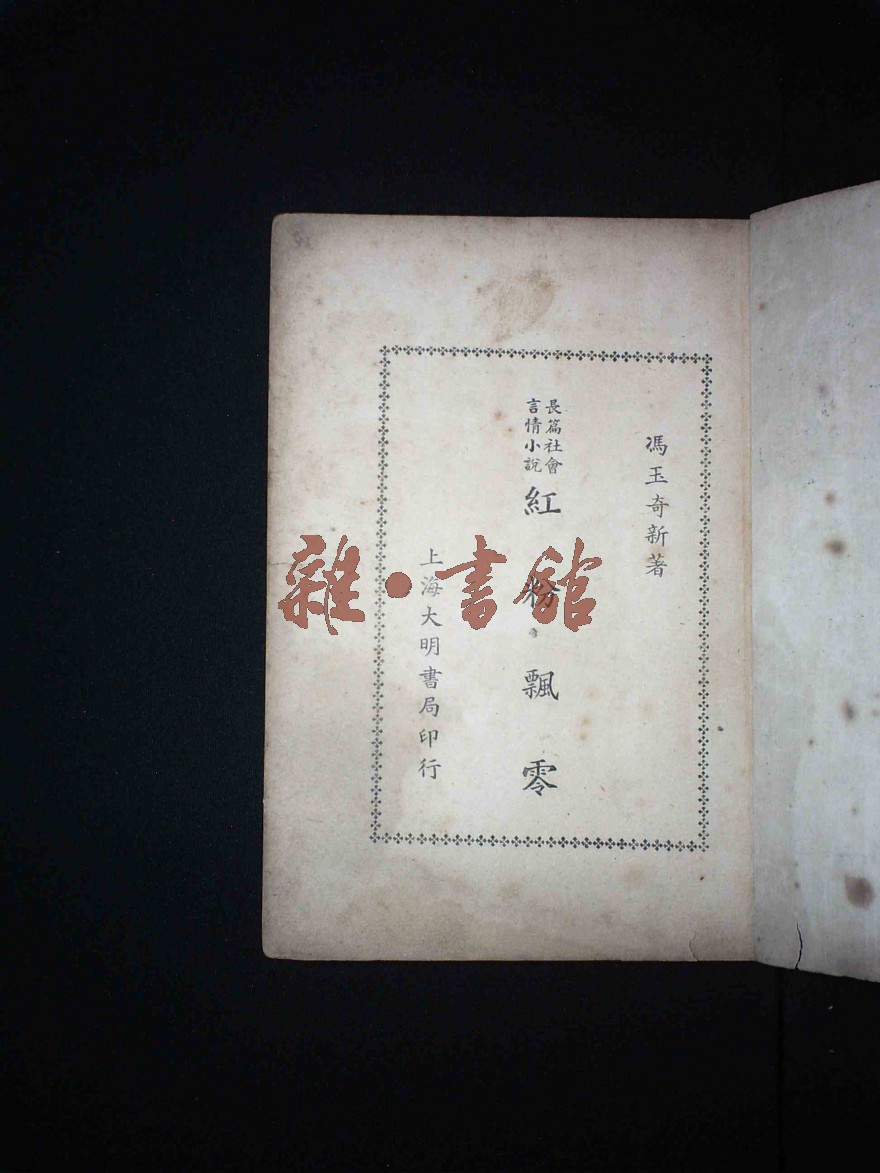 馮玉奇新著
長篇社會
言情小說
紅粉飄零
上海大明書局印行
雜·書館